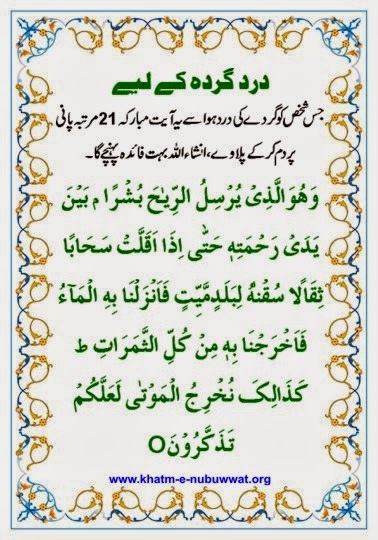 درد گردہ کے لیے
جس شخص کو گردے کی درد ہو اسے یہ آیت مبارکہ 21 مرتبہ پانی
پر دم کر کے پلاوے، انشاء اللہ بہت فائدہ پہنچے گا۔
وَهُوَ الَّذِیْ یُرْسِلُ الرِّیٰحَ بُشْرًا ۢ بَیْنَ
یَدَیْ رَحْمَتِهٖ حَتّٰۤی اِذَا اَقَلَّتْ سَحَابًا
ثِقَالًا سُقْنٰهُ لِبَلَدٍ مَّیِّتٍ فَاَنْزَلْنَا بِهِ الْمَآءَ
فَاَخْرَجْنَا بِهٖ مِنْ كُلِّ الثَّمَرَاتِ ط
كَذَالِكَ نُخْرِجُ الْمَوْتٰی لَعَلَّكُمْ
تَذَكَّرُوْنَ O
www.khatm-e-nubuwwat.org